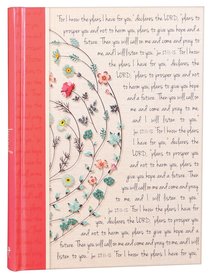 "For I know the plans I have for you," declares the LORD, "plans to
prosper you and not to harm you, plans to give you hope and a
future. Then you will call on me and come and pray to
me, and I will listen to you." Jer 29:11-12 For I know
the plans I have for you," declares the
LORD, "plans to prosper you and not
to harm you, plans to give you
hope and a future. Then you
will call on me and come
and pray to me,
and I will
listen to you."
Jer 29:11-12 For I
know the plans I
have for you," declares
the LORD, "plans to prosper
you and not to harm you, plans
to give you hope and a future. Then
you will call on me and come and pray
to me, and I will listen to you." Jer 29:11-12
For I know the plans I have for you," declares
the LORD, "plans to prosper you and not to harm
you, plans to give you hope and a future. Then
you will call on me and come and pray to me, and I will
listen to you." Jer 29:11-12 For I know the plans I have for you,"